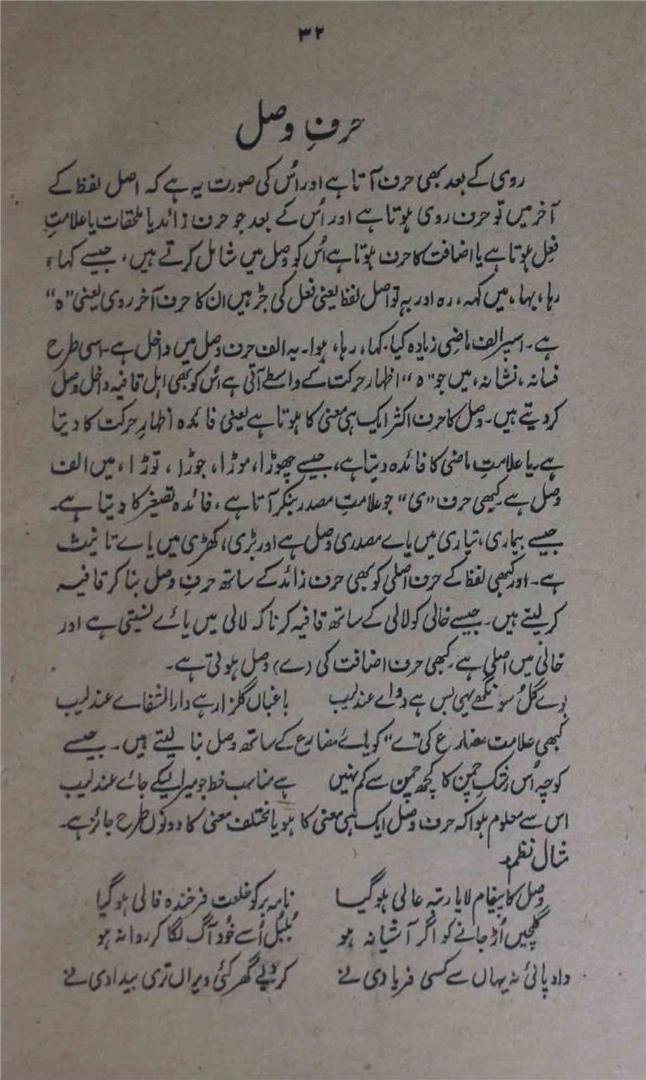 ۳۲
حرفِ وصل
روی کے بعد بھی حرف آتا ہے اور اُس کی صورت یہ ہے کہ اصل لفظ کے
آخر میں تو حرف روی ہوتا ہے اور اُس کے بعد جو حرف زائد یا ملحقات یا علامتِ
فعل ہوتا ہے یا اضافت کا حرف ہوتا ہے اُس کو وصل میں شامل کرتے ہیں، جیسے کہا،
رہا، بہا، میں کہہ، رہ اور بہ تو اصل لفظ یعنی فعل کی جڑ ہیں ان کا حرف آخر روی یعنی "ہ"
ہے۔ اسپر الف ماضی زیادہ کیا۔ کہا، رہا، ہوا۔ یہ الف حرف وصل میں داخل ہے۔ اسی طرح
فسانہ، نشانہ، میں جو "ہ" اظہار حرکت کے واسطے آتی ہے اُس کو بھی اہل قافیہ داخل وصل
کر دیتے ہیں۔ وصل کا حرف اکثر ایک ہی معنی کا ہوتا ہے یعنی فائدہ اظہار حرکت کا دیتا
ہے۔ یا علامتِ ماضی کا فائدہ دیتا ہے، جیسے چھوڑا، موڑا، جوڑا، توڑا، میں الف
وصل ہے کبھی حرف "ی" جو علامتِ مصدر بنکر آتا ہے، فائدہ تصغیر کا دیتا ہے۔
جیسے بیماری، تیاری میں یاے مصدری وصل ہے اور بڑی، کھڑی میں یاے تانیث
ہے۔ اور کبھی لفظ کے حرف اصلی کو بھی حرف زائد کے ساتھ حرفِ وصل بنا کر قافیہ
کر لیتے ہیں۔ جیسے خالی کو لالی کے ساتھ قافیہ کرنا کہ لالی میں یائے نسبتی ہے اور
خالی میں اصلی ہے۔ کبھی حرف اضافت کی (ے) وصل ہوتی ہے۔
بوے گل سونگھے یہی بس ہے دواے عندلیب باغباں گلزار ہے دارالشفاے عندلیب
کبھی علامت مضارع کی "ے" کو یائے مضارع کے ساتھ وصل بنا لیتے ہیں۔ جیسے
کوچہ اُس رشک چمن کا کچھ چمن سے کم نہیں ہے مناسب خط جو میرا لیکے جائے عندلیب
اس سے معلوم ہوا کہ حرف وصل ایک ہی معنی کا ہو یا مختلف معنی کا دونوں طرح جائز ہے۔
مثال نظم۔
وصل کا پیغام لایا رتبہ عالی ہو گیا نامہ بر کو خلعت فرخندہ فالی ہو گیا
گلچیں اُڑ جانے کو اگر آشیانہ ہو بُلبُل اُسے خود آگ لگا کر روانہ ہو
داد پائی نہ یہاں سے کسی فریادی نے کر دیے گھر کئی ویراں تری بیدادی نے